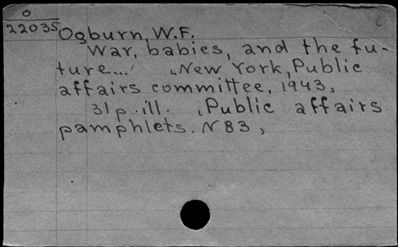 0
22035 Ogburn, W.F.
War, babies, and the fu-
ture... New York, Public
affairs committee, 1943,
31p. ill. , Public affairs
pamphlets. N 83,